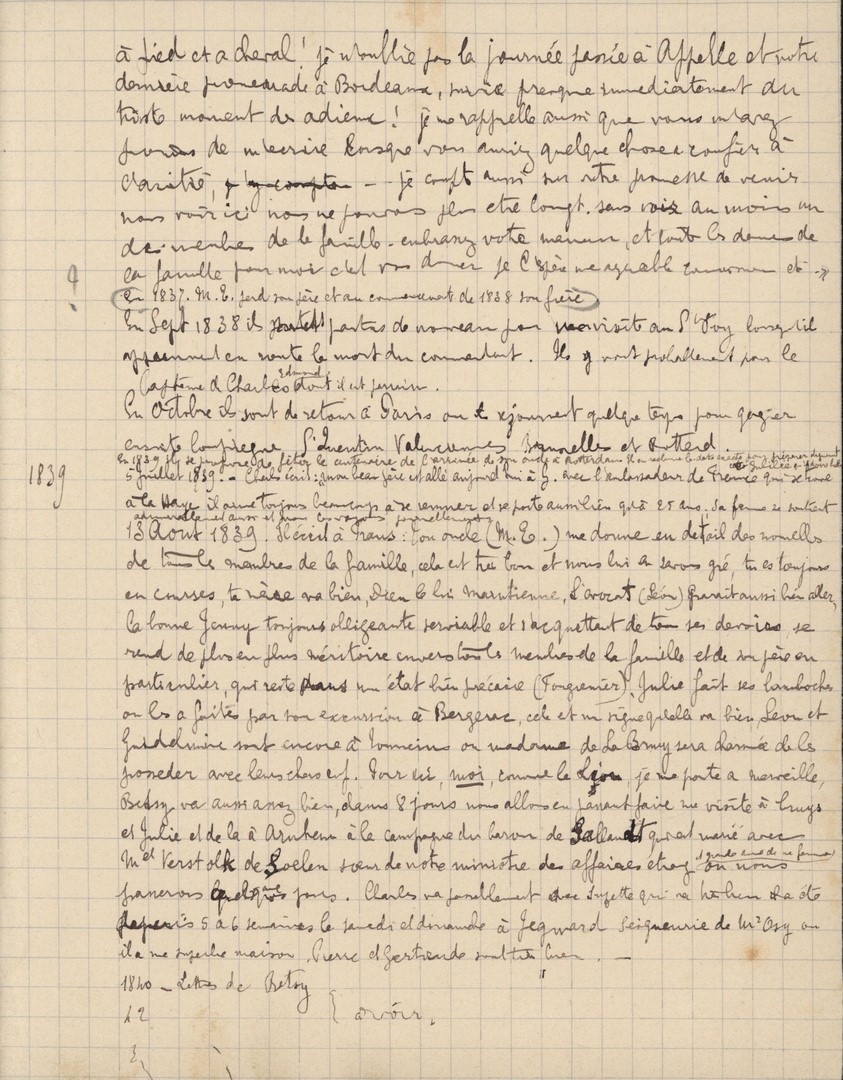 à pied et a cheval! je n'oublie pas la journée passée à Appelle et votre
dernière promenade à Bordeaux, suivie presque immediatement du
triste moment des adieux! je me rappelle aussi que vous m'avez
promis de m'ecrire lorsque vous auriez quelque chose a confier à
l'amitié, j'y compte -- je compte aussi sur votre promesse de venir
nous voir ici nous ne pouvons plus etre longt. sans voir au moins un
des membres de la famille - embrassez votre maman, et toute les dames de
sa famille pour moi c'est vous donner je l'espère une agreable commission etc
?
En 1837. M. E. perd son père et au commencement de 1838 son frère
En Sept 1838 ils partis de nouveau pour visite au Pt Foy lorsqu'il
apprennent en route la mort du commandant. Ils y vont probablement pour le
Baptême de Charles Edmond dont il est parrain.
En Octobre ils sont de retour à Paris ou séjournent quelque temps pour gagner
ensuite Compiegne St Quentin Valenciennes Bruxelles et Rotterd.
1839
En 1839 de fêter le centenaire de l'arrivée de son oncle à Rotterdam
5 juillet 1839. - Charles écrit: mon beau père est allé aujourd'hui à avec l'ambassadeur de France qui se trouve
à La Haye, il aime toujours beaucoup à se remuer et se porte aussi bien qu'à 25 ans, sa femme se soutient
admirablement aussi et nous les voyons journellement
13 Aout 1839. Il écrit à Frans: Ton oncle (M. E.) me donne en detail des nouvelles
de tous les membres de la famille, cela est très bon et nous lui en savons gré, tu es toujours
en courses, ta mère va bien, Dieu le lui maintienne, L'avocat (Léon) parait aussi bien aller,
la bonne Jenny toujours obligeante serviable et s'acquettant de tous ses devoirs, se
rend de plus en plus méritoire envers tous les membres de la famille et de son père en
particulier, qui reste dans un état bien précaire (Forgernier). Julie fait ses bamboches
ou les a faites par son excursion à Bergerac, cela est un signe qu'elle va bien, Leon et
Guidelmine sont encore à Tonneins ou madame de La Brunz sera charmée de les
posseder avec leurs chers enf. Pour ici, moi, comme le Lion je me porte a merveille,
Betsy va aussi assez bien, dans 8 jours nous allons en passant faire une visite à
et Julie et de la à Arnhem à la campagne du baron de qui est marié avec
Mel Verstolk de Soelen sœur de notre ministre des affaires étrang ou nous
passerons quelques jours. Charles va passablement avec Suzette qui va très bien
depuis 5 a 6 semaines le samedi et dimanche à Jegward Seigneurie de Mr Osy ou
il a une superbe maison, Pierre et Gertrude sont très bien. -
1840 - Lettres de Betsy "
42 { à voir.